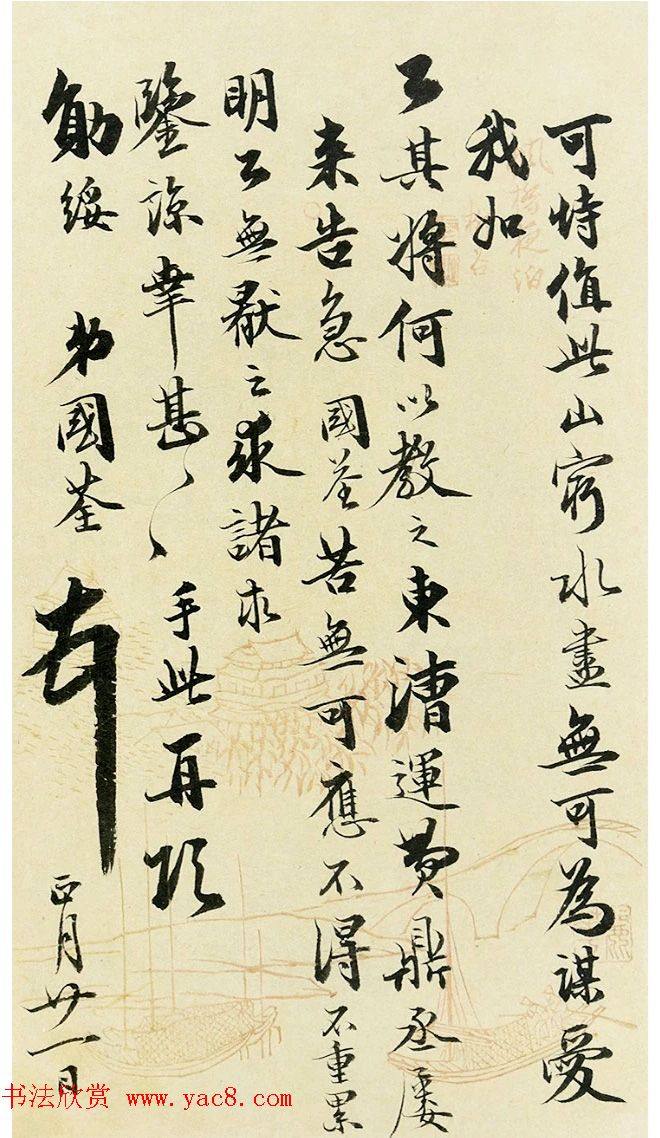 可恃值此山窮水盡無可為謀愛
我如
公其將何以教之東漕運費鼎丞屢
来告急國荃苦無可應不得不重累
明公無厭之求諸求
鑒諒幸甚〻〻手此再頌
勛綏 弟國荃
正月廿一日
书法欣赏 www.yac8.com